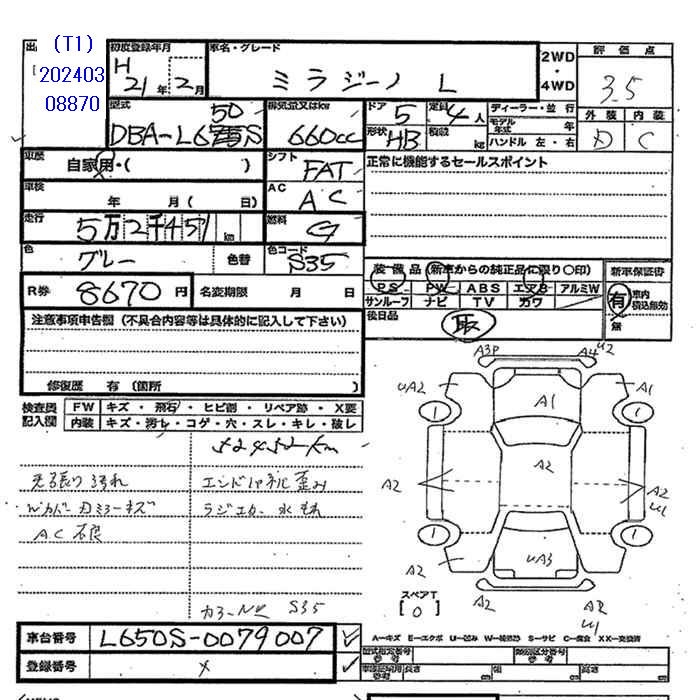 (T1)
202403
08870
初度登録年月
H 21年 2月
車名・グレード
ミラジーノ L
2WD
・
4WD
評価点
3.5
外装 内装
D C
型式
DBA-L650S
排気量又はkw
660cc
ドア 5
定員 4人
形状 HB
積載 kg
ディーラー・並行
モデル年式 年
ハンドル 左・右
車歴
自家用・( )
シフト
FAT
正常に機能するセールスポイント
車検
年 月( 日)
AC
AC
走行
5万2千451km
燃料
G
色
グレー
色替
色コード
S35
装備品(新車からの純正品に限り○印)
PS PW ABS エアB アルミW
サンルーフ ナビ TV カワ
後日品
取
新車保証書
有 車内積込無効
無
R券 8670円
名変期限 月 日
注意事項申告欄(不具合内容等は具体的に記入して下さい)
修復歴 有(箇所 )
検査員記入欄
FW キズ・飛石・ヒビ割・リペア跡・X要
内装 キズ・汚レ・コゲ・穴・スレ・キレ・破レ
52452km
天張り汚れ
エンドパネル歪み
Wカバー 刀ミラーキズ
ラジエター水もれ
AC不良
カラーNo S35
A3P A4 U2
UA2 A1 A1
A2 A2 A2 U1
A2 UA3 A2
A2 A2 U1
スペアT
[0]
車台番号 L650S-0079007
登録番号 ×
A−キズ E−エクボ U−凹み W−補修跡 S−サビ C−腐食 XX−交換済
型式指定番号
参考
類別区分番号
参考
長さ cm
幅 cm
高さ cm